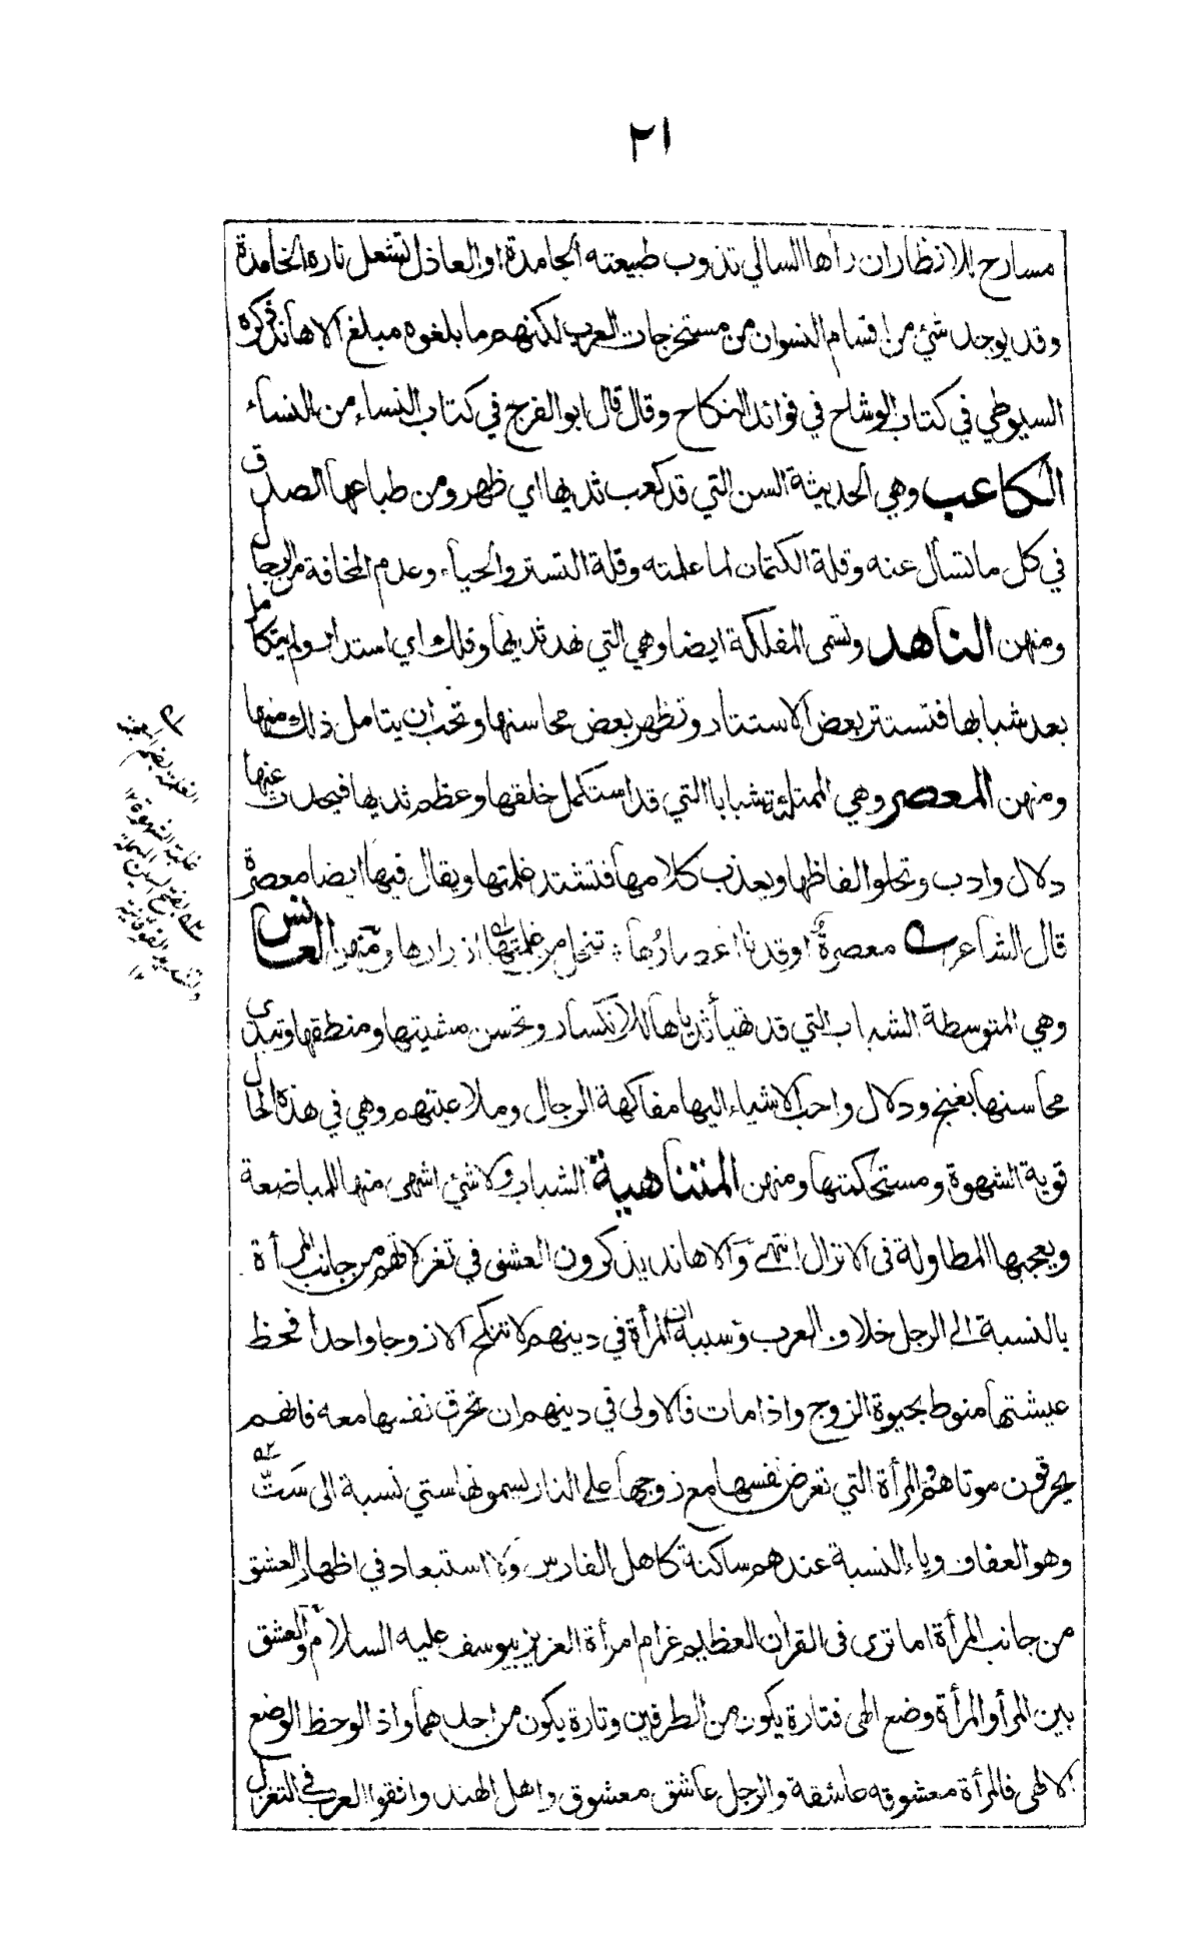 ٢١
مسارح للانظار ان رأها السالي تذوب طبيعته الجامدة او العاذل تشعل ناره الخامدة
وقد يوجد شئ من اقسام النسوان من مستخرجات العرب لكنهم ما بلغوه مبلغ الاهاند ذكره
السيوطي في كتاب الوشاح في فوائد النكاح وقال قال ابو الفرج في كتاب النساء من النساء
الكاعب وهي الحديثة السن التي قد كعب ثديها اي ظهر ومن طباعها الصدق
في كل ما تسأل عنه وقلة الكتمان لما علمته وقلة التستر والحياء وعدم المخافة من الرجال
ومنهن الناهد وتسمى المفلكة ايضا وهي التي نهد ثديها وفلك اي استدار ولم يتكامل
بعد شبابها فتستتر بعض الاستتار وتظهر بعض محاسنها وتحب ان يتامل ذلك منها
ومنهن المعصر وهي الممتلئة شبابا التي قد استكمل خلقها وعظم ثديها فيحدث عنها
دلال وادب وتحلو الفاظها ويعذب كلامها فتشتد غلمتها ويقال فيها ايضا معصرة
قال الشاعر معصرة او قد نا اعصارها تنحل من غلمتها ازرارها ومنهن العانس
وهي المتوسطة الشباب التي قد تهيأ ثدياها للانكسار وتحسن مشيتها ومنطقها وتبدى
محاسنها بغنج ودلال واحب الاشياء اليها مفاكهة الرجال وملاعبتهم وهي في هذه الحال
قوية الشهوة ومستحكمتها ومنهن المتناهية الشباب ولا شئ اشهى منها للمباضعة
ويعجبها المطاولة فى الانزال انتهى والاهاند يذكرون العشق في تغزلاتهم من جانب المرأة
بالنسبة الى الرجل خلاف العرب وسببه ان المرأة في دينهم لا تنكح الا زوجا واحدا فحظ
عيشتها منوط بحيوة الزوج واذا مات فالاولى في دينهم ان تحرق نفسها معه فانهم
يحرقون موتاهم والمرأة التي تعرض نفسها مع زوجها على النار يسمونها ستي نسبة الى سَتّ
وهو العفاف وياء النسبة عندهم ساكنة كاهل الفارس ولا استبعاد في اظهار العشق
من جانب المرأة اما ترى فى القران العظيم غرام امرأة العزيز بيوسف عليه السلام والعشق
بين المرأ والمرأة وضع الهى فتارة يكون من الطرفين وتارة يكون من احدهما واذا لوحظ الوضع
الالهى فالمرأة معشوقه عاشقة والرجل عاشق معشوق واهل الهند وافقوا العرب في التغزل
الغلمة بضم المعجمة
غلبة الشهوة ١٢
٥٢ بفتح السين المهملة
وتشديد الفوقانية
١٢